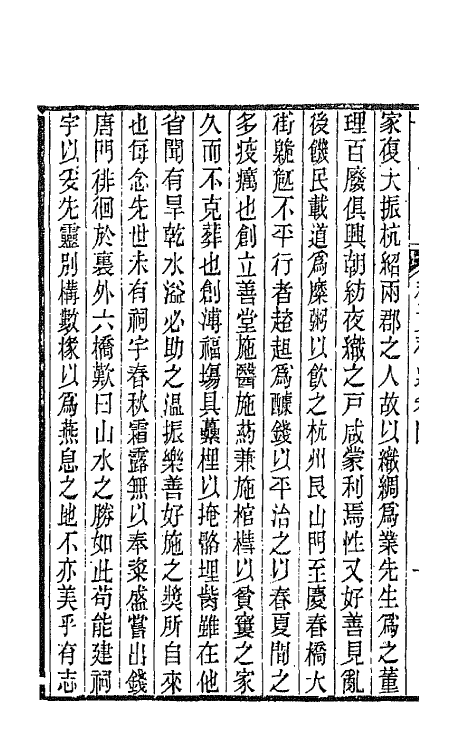 家復大振杭紹兩郡之人故以織綢爲業先生爲之董
理百廢俱興朝紡夜織之戸咸蒙利焉性又好善見亂
後饑民載道爲糜粥以飲之杭州艮山門至慶春橋大
街臲卼不平行者趑趄爲醵錢以平治之以春夏間之
多疫癘也創立善堂施醫施葯兼施棺槥以貧窶之家
久而不克葬也創溥福塲具虆梩以掩骼埋胔雖在他
省聞有旱乾水溢必助之温振樂善好施之奬所自來
也每念先世未有祠宇春秋霜露無以奉粢盛嘗出錢
唐門徘徊於裏外六橋歎曰山水之勝如此苟能建祠
宇以妥先靈别構數椽以爲燕息之地不亦美乎有志